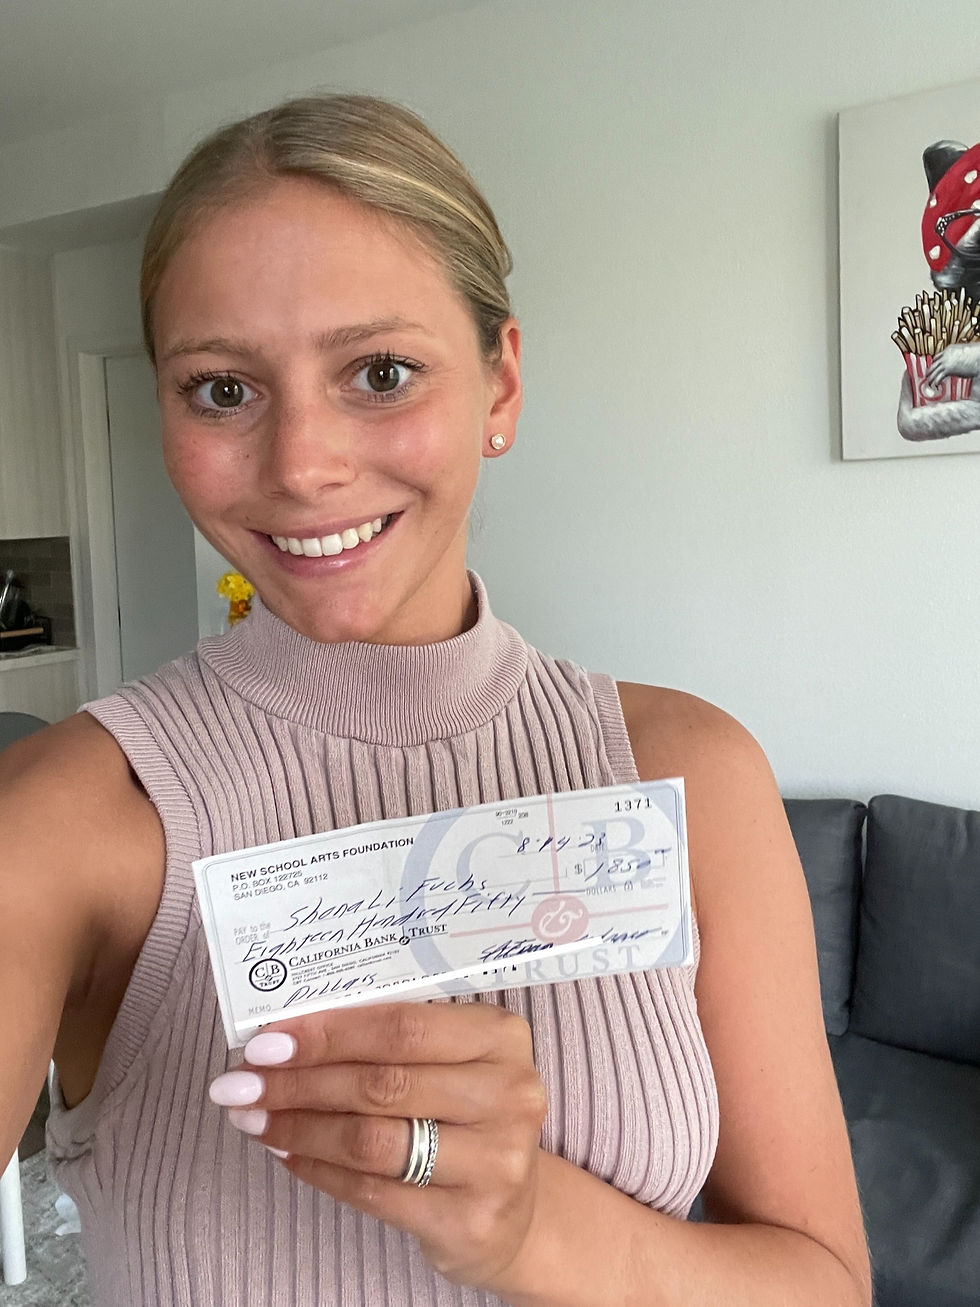 1371
90-3919
1222
NEW SCHOOL ARTS FOUNDATION
P.O. BOX 122725
SAN DIEGO, CA 92112
8-14-23
DATE
PAY to the
ORDER of
Shana Li Fuchs
$ 1850
Eighteen Hundred Fifty
DOLLARS
C B
&
TRUST
CALIFORNIA BANK & TRUST
HILLCREST OFFICE
C B
TRUST
MEMO